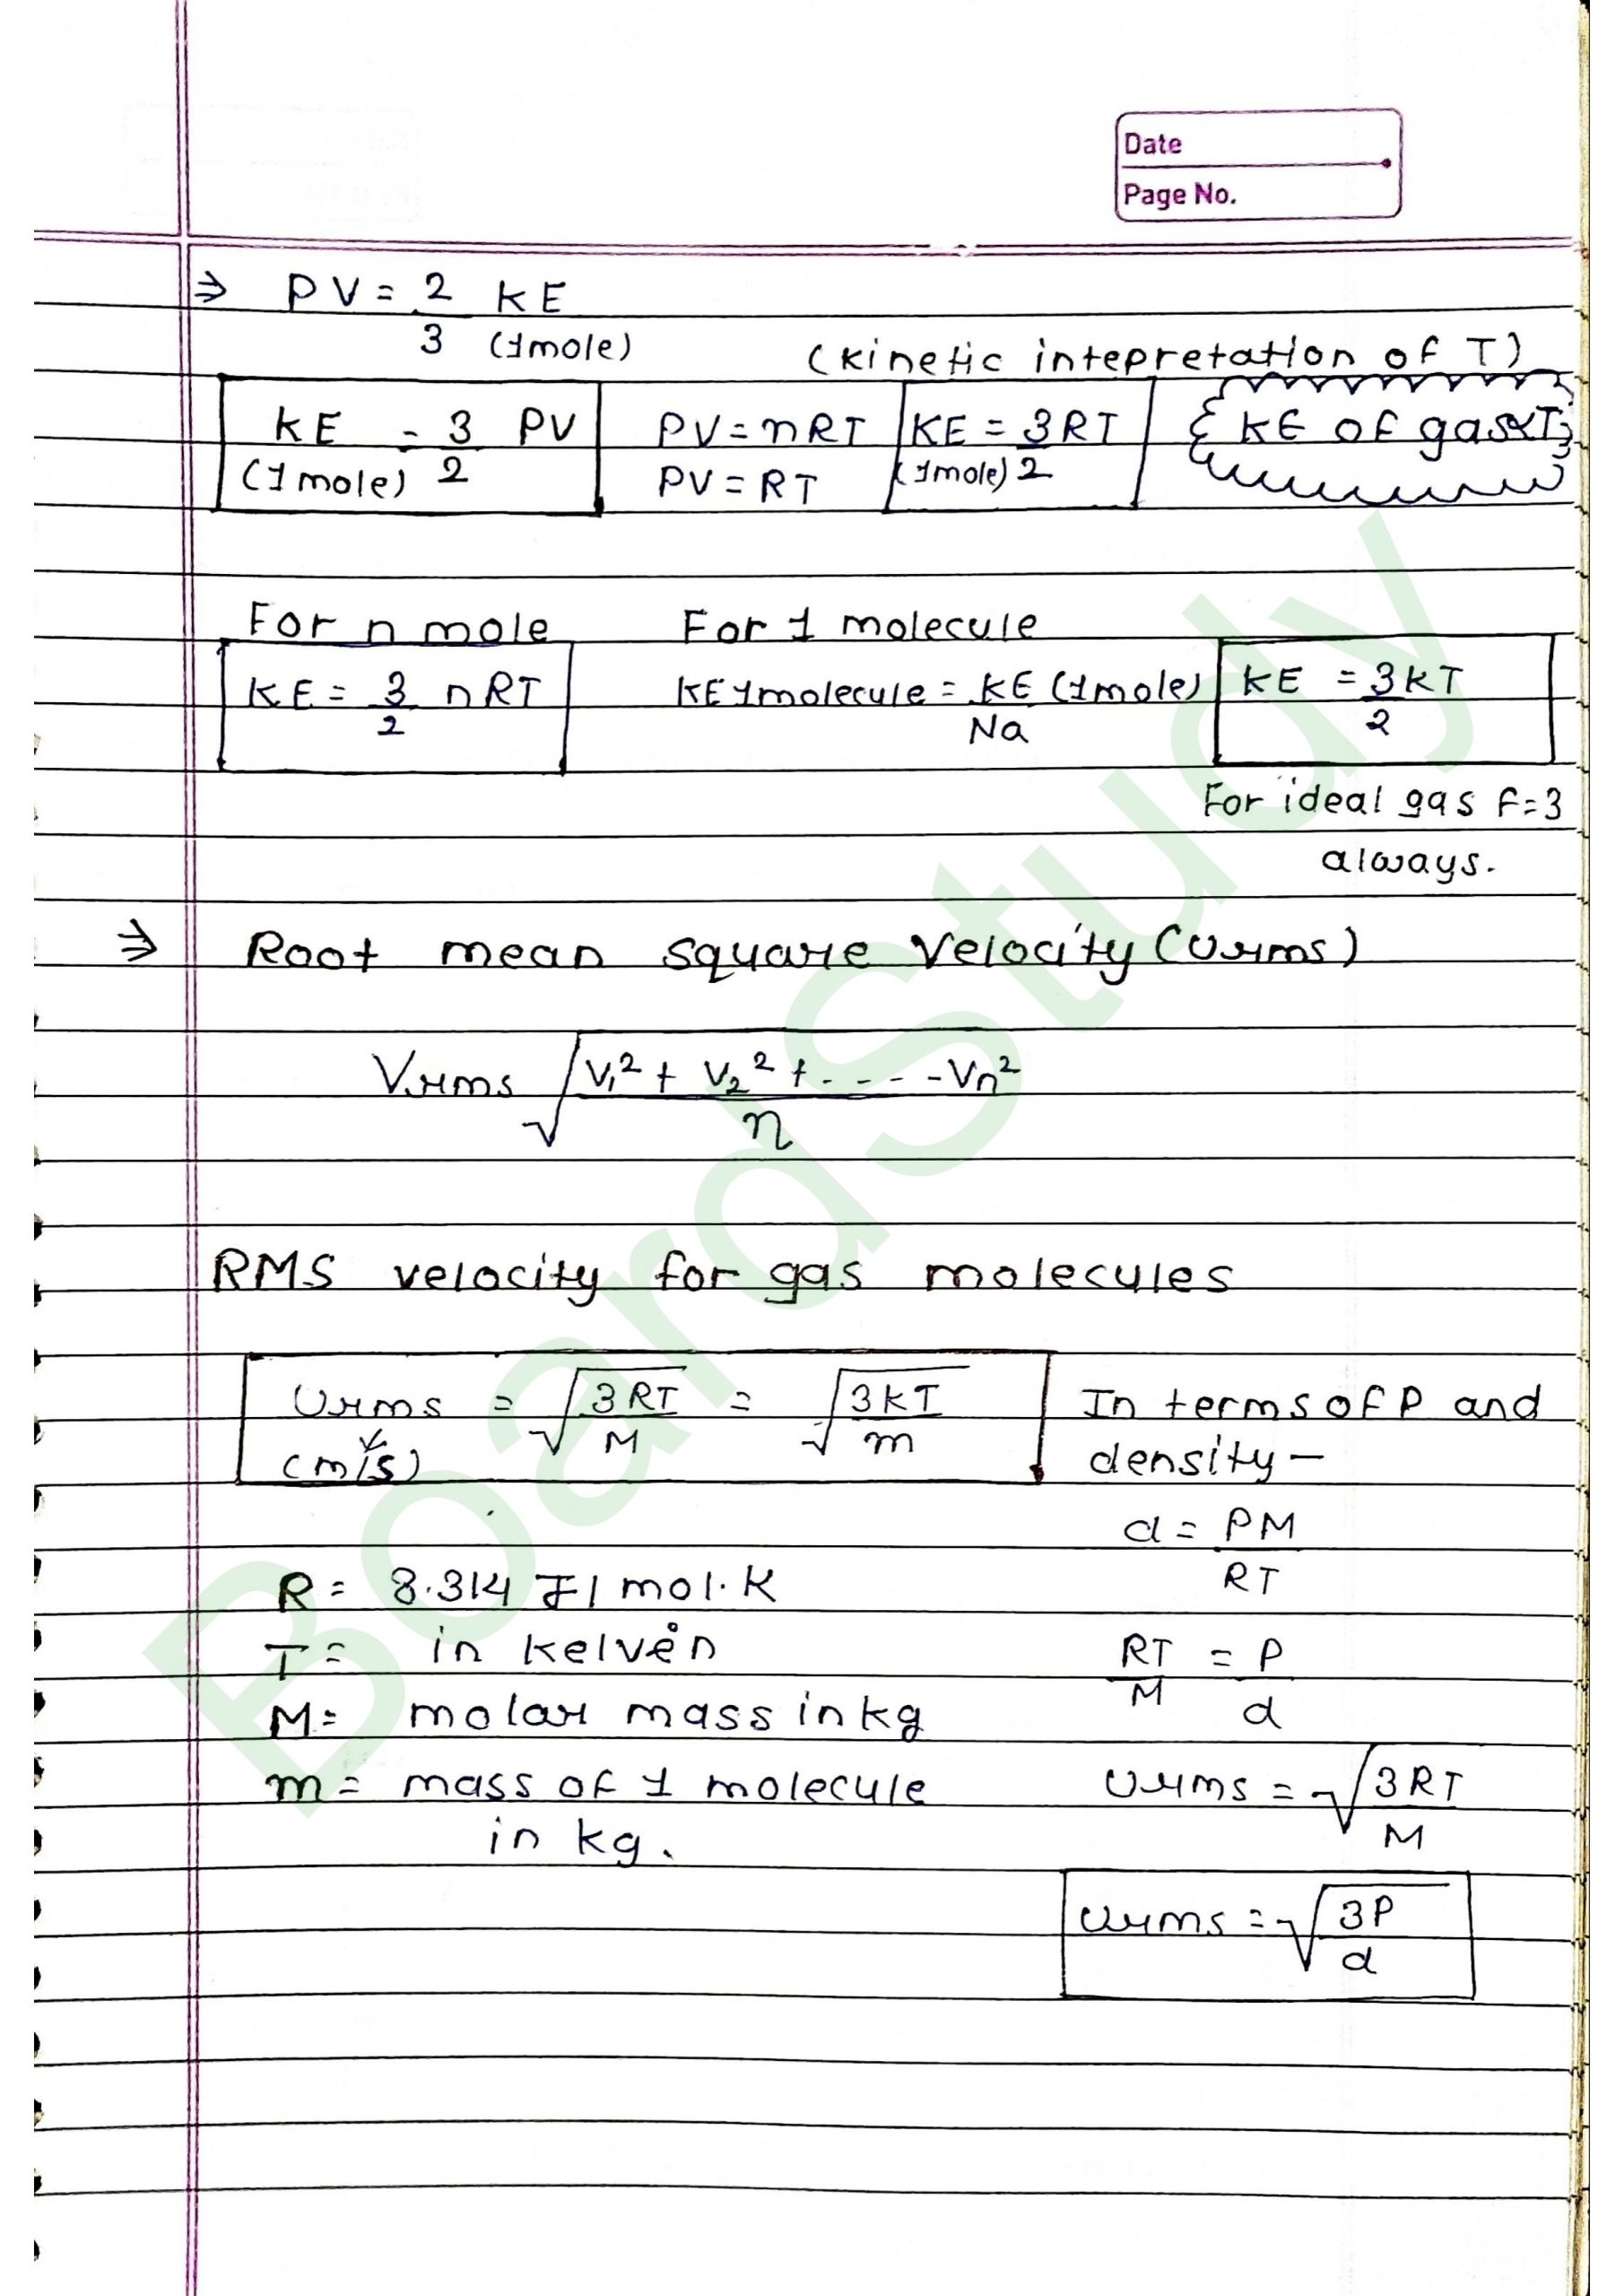 Date
Page No.
⇒ PV = 2/3 KE (1mole)
(Kinetic intepretation of T)
KE (1 mole) = 3/2 PV
PV = nRT
PV = RT
KE (1mole) = 3RT/2
KE of gas ∝ T
For n mole
KE = 3/2 nRT
For 1 molecule
KE 1molecule = KE (1mole)/Na
KE = 3kT/2
For ideal gas f=3
always.
⇒ Root mean square Velocity (Urms)
Vrms √(V₁² + V₂² + - - - - Vn²)/n
RMS velocity for gas molecules
Urms (m/s) = √3RT/M = √3kT/m
R = 8.314 J/mol.K
T = in kelvin
M = molar mass in kg
m = mass of 1 molecule
in kg.
In terms of P and
density -
d = PM/RT
RT/M = P/d
Urms = √3RT/M
Urms = √3P/d
BoardStudy